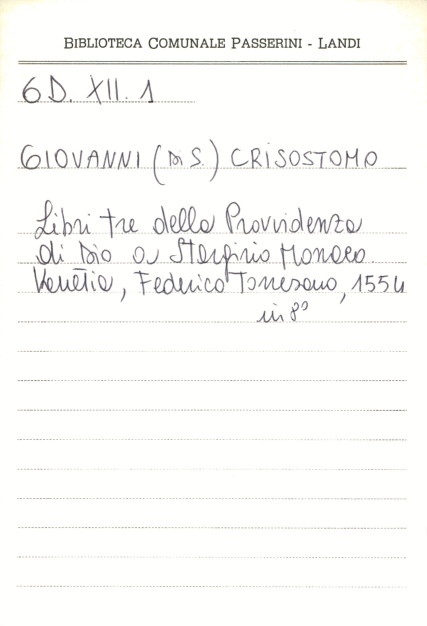 BIBLIOTECA COMUNALE PASSERINI - LANDI
6D. XII. 1
GIOVANNI (DI S.) CRISOSTOMO
Libri tre della Providenza
di Dio a Stargirio Monaco.
Venetia, Federico Torresano, 1554
in 8°